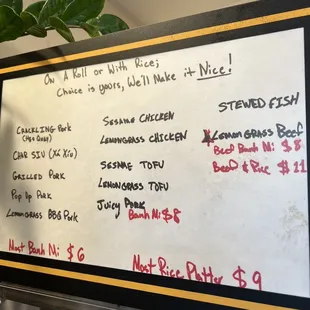 On A Roll or With Rice;
Choice is yours, We'll Make it Nice!
Crackling Pork
(Heo Quay)
Char Siu (Xá Xíu)
Grilled Pork
Pop Up Pork
Lemongrass BBQ Pork
Most Banh Mi $6
Sesame Chicken
Lemongrass Chicken
Sesame Tofu
Lemongrass Tofu
Juicy Pork
Banh Mi $8
Most Rice Platter $9
Stewed Fish
Lemongrass Beef
Beef Banh Mi $8
Beef & Rice $11